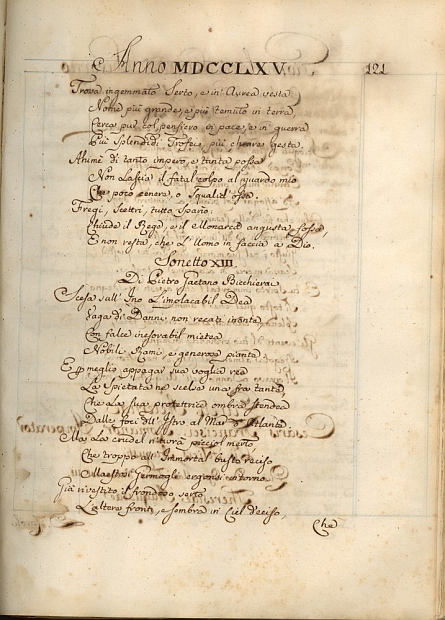 Anno MDCCLXV
121
Trova ingemmato Serto, e in Aurea vesta
Nome più grande, e più temuto in terra,
Cerca pur col pensiero in pace, e in guerra
Più Splendidi Trofei, più chiare gesta.
Ahimè di tanto impero, e tanta possa
Non Lascia il fatal colpo al guardo mio
Che poco cenere, o Squalid' ossa.
Fregi, Scettri, tutto Sparìo:
Chiude il Rege, e il Monarca angusta fossa,
E non resta, che L'Uomo in faccia a Dio.
Sonetto XIII
Di Pietro Gaetano Bicchiera
Scesa sull' Ino L'implacabil Dea
Paga di Danni non recati innanti,
Con falce inesorabil mietea
Nobili Rami, e generose piante;
E per meglio appagar sua voglia rea
La Spietata ne scelse una fra tante,
Che La sua protettrice ombra stendea
Dalle foci dell' Istro al Mar d'Atlante.
Ma La crudel n'avrà picciol merto,
Che troppo all' Immortal busto reciso
Maestosi Germogli ergonsi intorno
Già rivestito il frondoso serto
L'altera fronte, e sembra in Ciel deciso,
Che